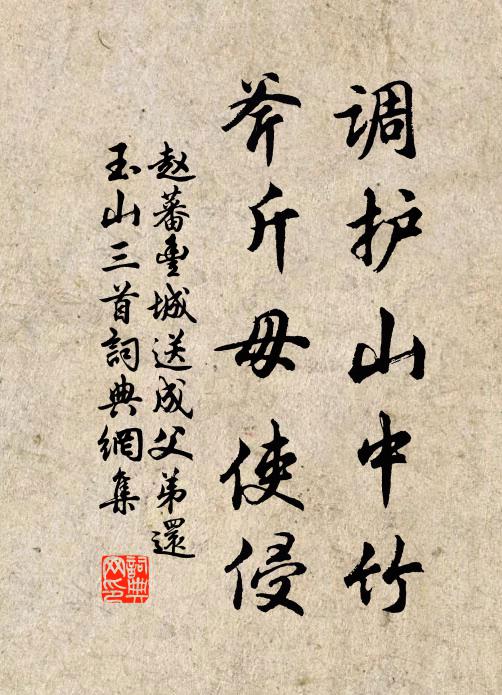 调护山中竹
斧斤毋使侵
赵蕃豊城送成父弟還
玉山三首詞典網集
詞典
网印